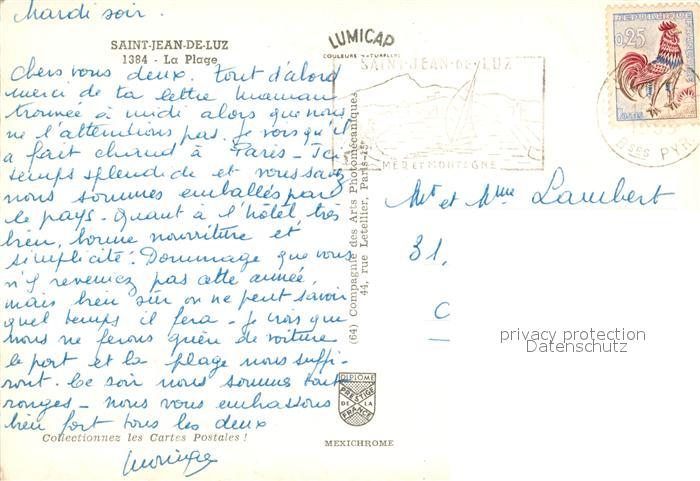 Mardi soir.
SAINT-JEAN-DE-LUZ
1384 - La Plage
Chers vous deux. Tout d'abord
merci de ta lettre maman
trouvée à midi alors que nous
ne l'attentions pas. Je vois qu'il
a fait chaud à Paris - Ici
temps splendide et vous savez
nous sommes emballés par
le pays - Quant à l'hôtel, très
bien, bonne nourriture et
simplicité. Dommage que vous
n'y reveniez pas cette année,
mais bien sûr on ne peut savoir
quel temps il fera - Je crois que
nous ne ferons guère de voiture
le port et la plage nous suffi-
ront. Ce soir nous sommes tout
rouges - nous vous embrassons
bien fort tous les deux
Collectionnez les Cartes Postales !
LUMICAP
COULEURS NATURELLES
SAINT-JEAN-DE-LUZ
MER ET MONTAGNE
(64) Compagnie des Arts Photomécaniques
44, rue Letellier, Paris-15e
DIPLOME
PRESTIGE
DE LA
FRANCE
MEXICHROME
0,25
BSES PYR
Mr et Mme Lambert
31,
C
privacy protection
Datenschutz